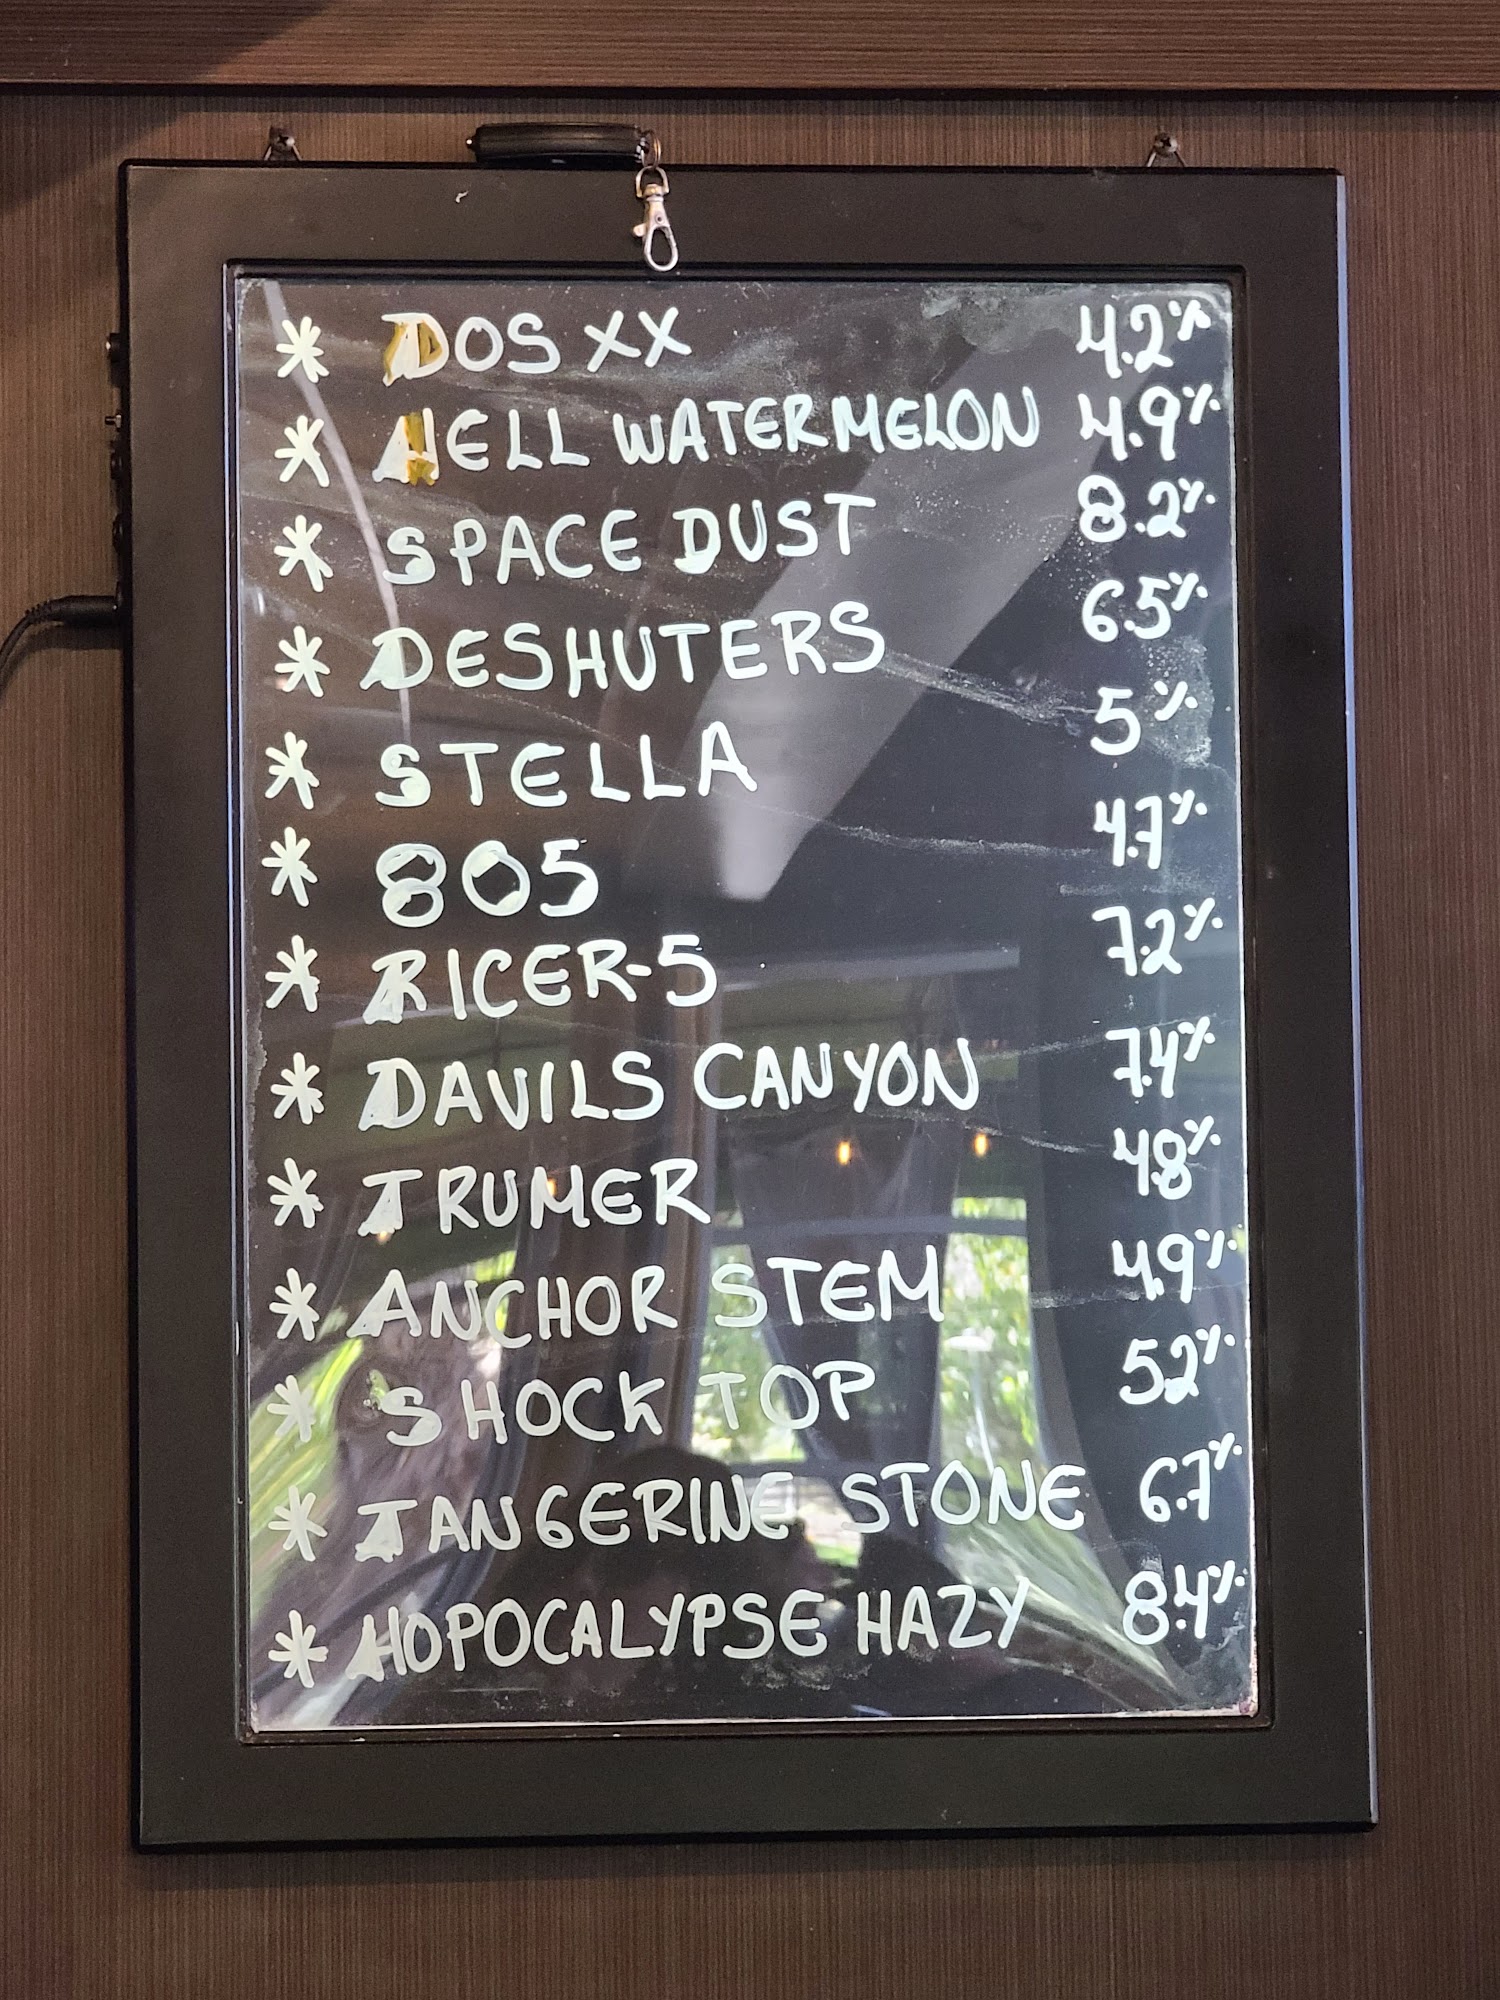 * DOS XX 4.2%
* HELL WATERMELON 4.9%
* SPACE DUST 8.2%
* DESHUTERS 6.5%
* STELLA 5%
* 805 4.7%
* RICER-5 7.2%
* DAVILS CANYON 7.4%
* TRUMER 4.8%
* ANCHOR STEM 4.9%
* SHOCK TOP 5.2%
* TANGERINE STONE 6.7%
* HOPOCALYPSE HAZY 8.4%